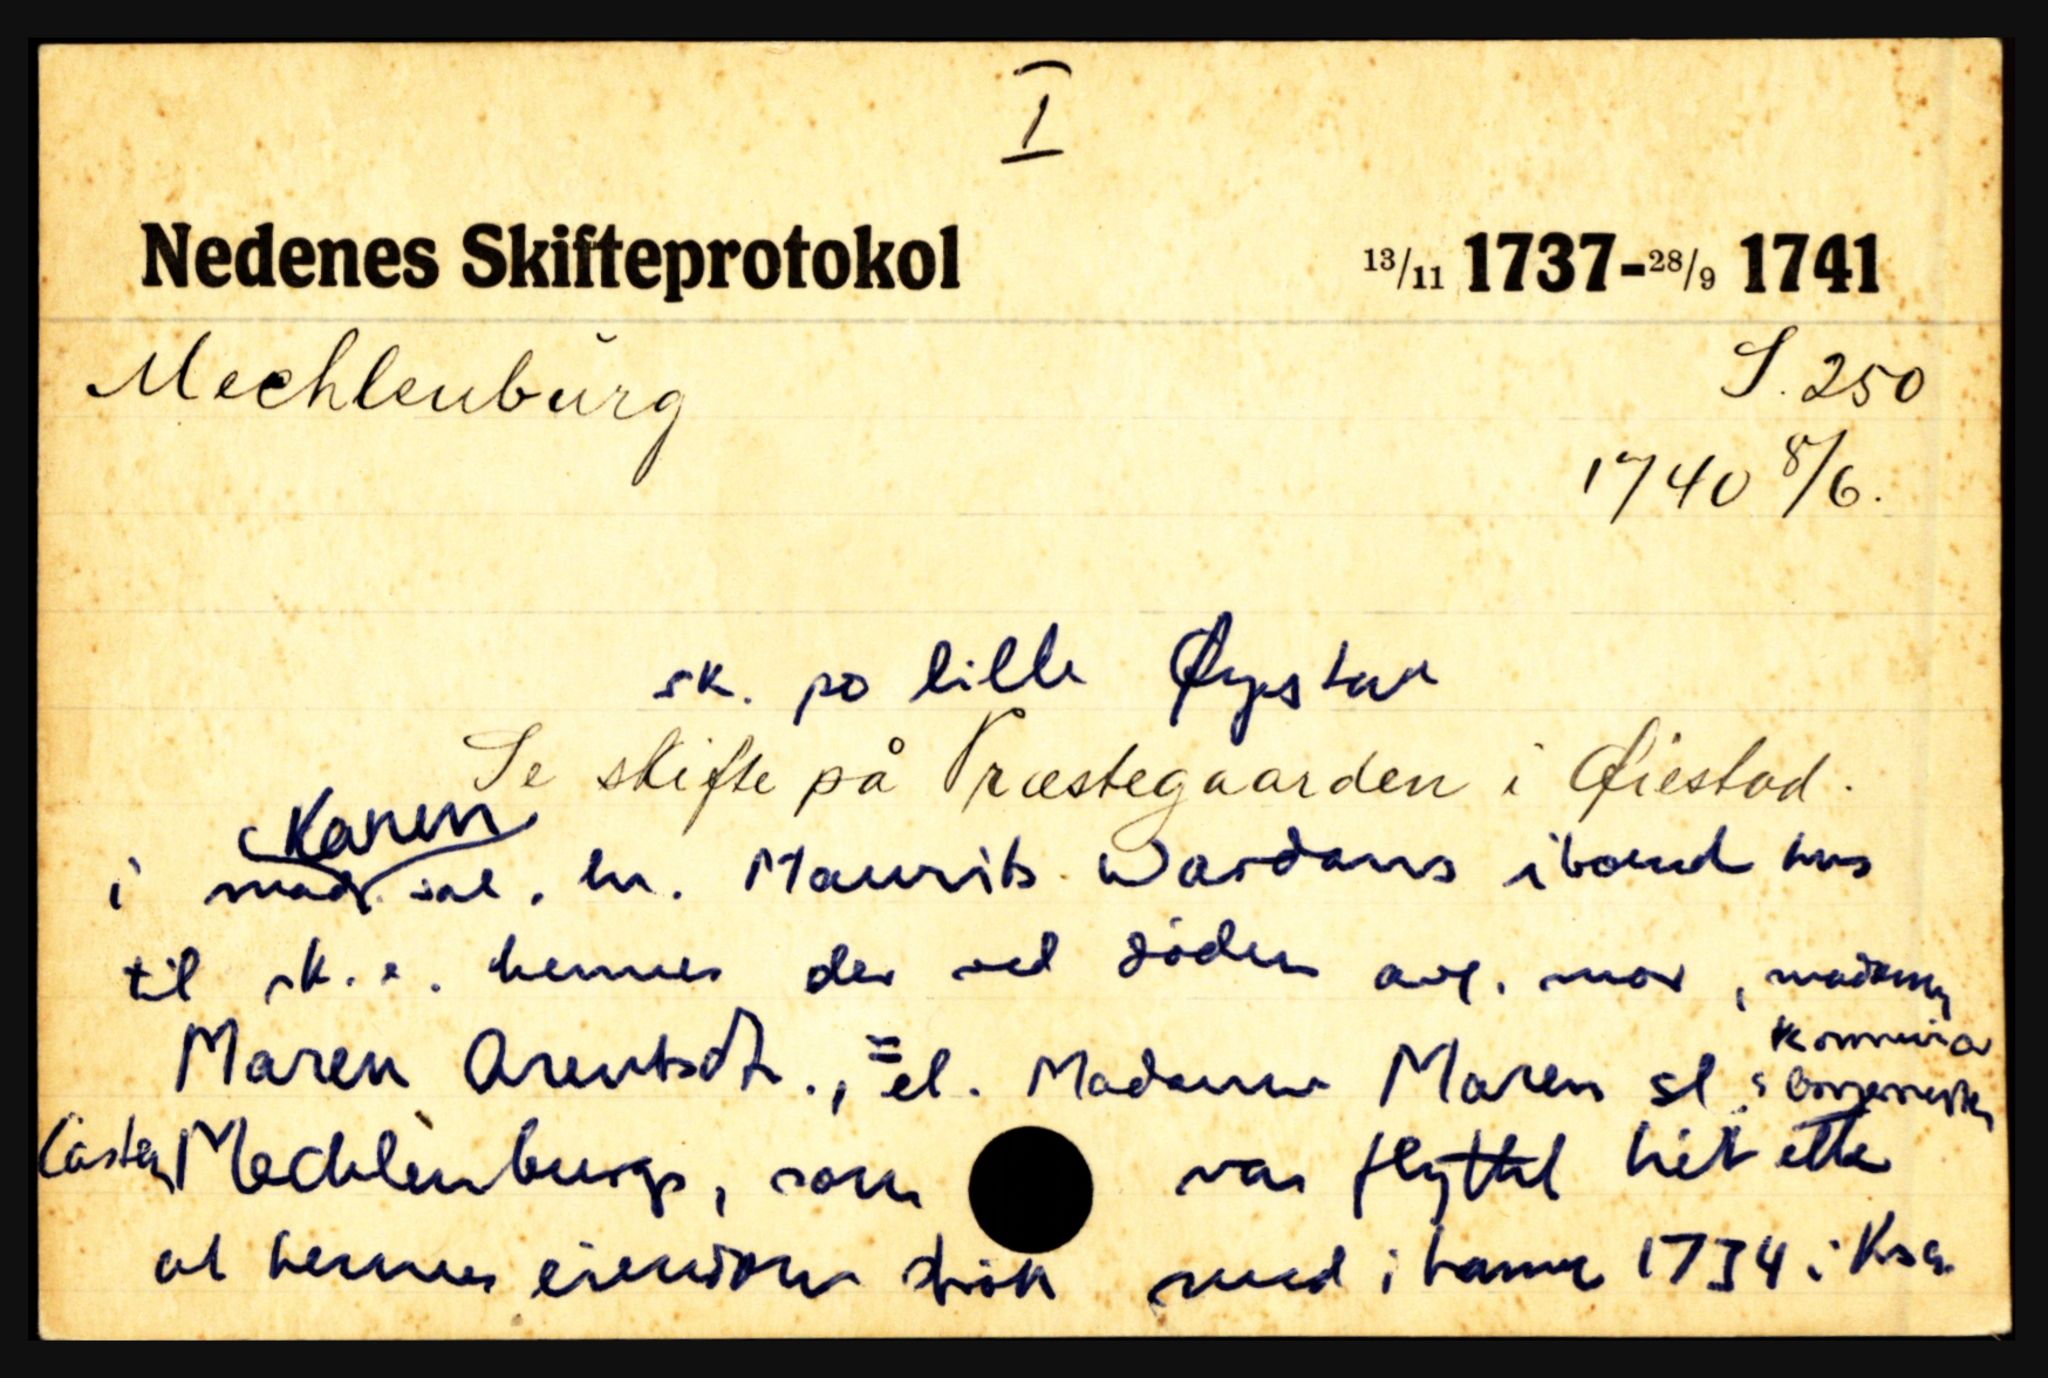 I
Nedenes Skifteprotokol 13/11 1737-28/9 1741
Mechlenburg S. 250
1740 8/6.
sk. po lille Øyestad
Se skifte på Præstegaarden i Øiestad.
Karen
i mad. sal. hr. Maurits Wardans iboend hus
til sk. e. hennes der ved døden avg. mor, madame
Maren Arentsdt., = el. Madame Maren sl.
Casten Mechlenburgs, som var flyttet hit etter
at hennes eiendom strök med i brannen 1734 i Ksa